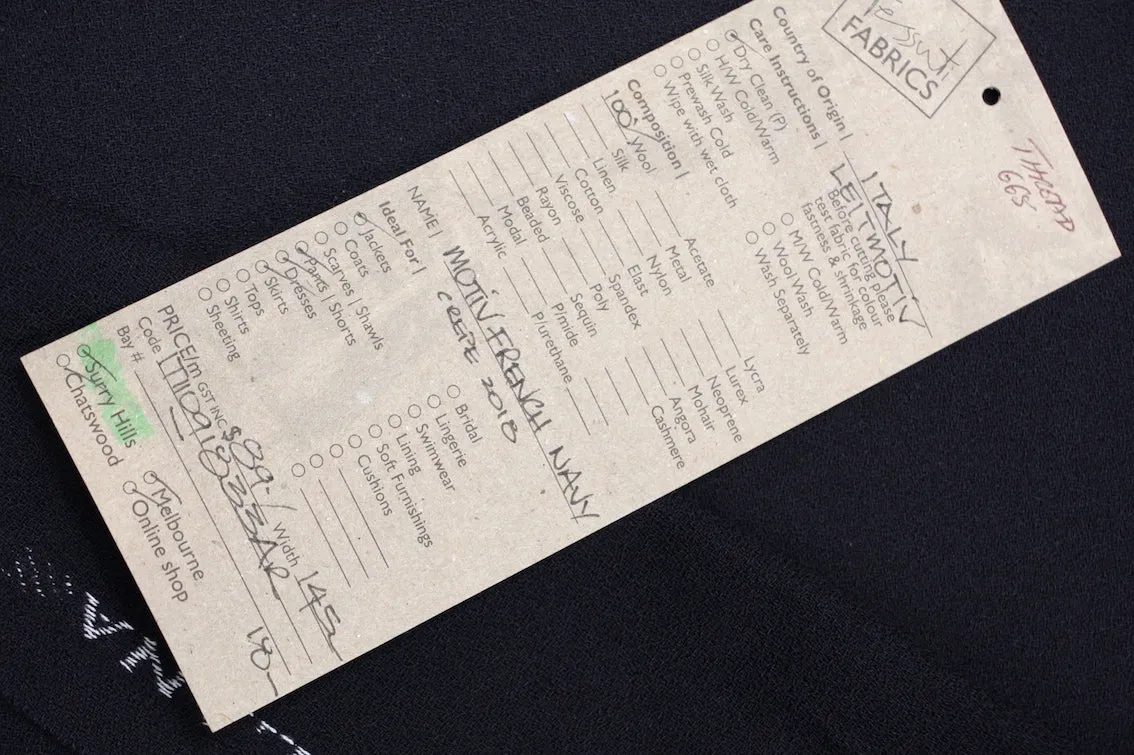 Tessuti
FABRICS
THREAD
665
Country of Origin | ITALY
LEITMOTIV
Care Instructions |
Before cutting please
test fabric for colour
fastness & shrinkage
Dry Clean (P)
H/W Cold/Warm
Silk Wash
Prewash Cold
Wipe with wet cloth
M/W Cold/Warm
Wool Wash
Wash Separately
Composition |
100% Wool
Silk
Linen
Cotton
Viscose
Rayon
Beaded
Modal
Acrylic
Acetate
Metal
Nylon
Elast
Spandex
Poly
Sequin
P/mide
P/urethane
Lycra
Lurex
Neoprene
Mohair
Angora
Cashmere
NAME | MOTIV FRENCH NAVY
CREPE 2018
Ideal For |
Jackets
Coats
Scarves | Shawls
Pants | Shorts
Dresses
Skirts
Tops
Shirts
Sheeting
Bridal
Lingerie
Swimwear
Lining
Soft Furnishings
Cushions
PRICE/m GST INC $89-/ Width 145
Code
Bay #
Surry Hills
Chatswood
Melbourne
Online shop